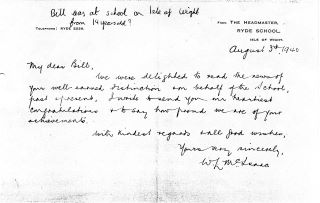 Bill was at school on Isle of Wight
from 14 years old?
FROM THE HEADMASTER,
RYDE SCHOOL,
ISLE OF WIGHT.
TELEPHONE: RYDE
August 3rd 1940
My dear Bill,
We were delighted to read the news of
your well-earned distinction on behalf of the School,
past & present, I write to send you our heartiest
congratulations & to say how proud we are of your
achievements.
With kindest regards & all good wishes,
Yours very sincerely,
W L McIsaac